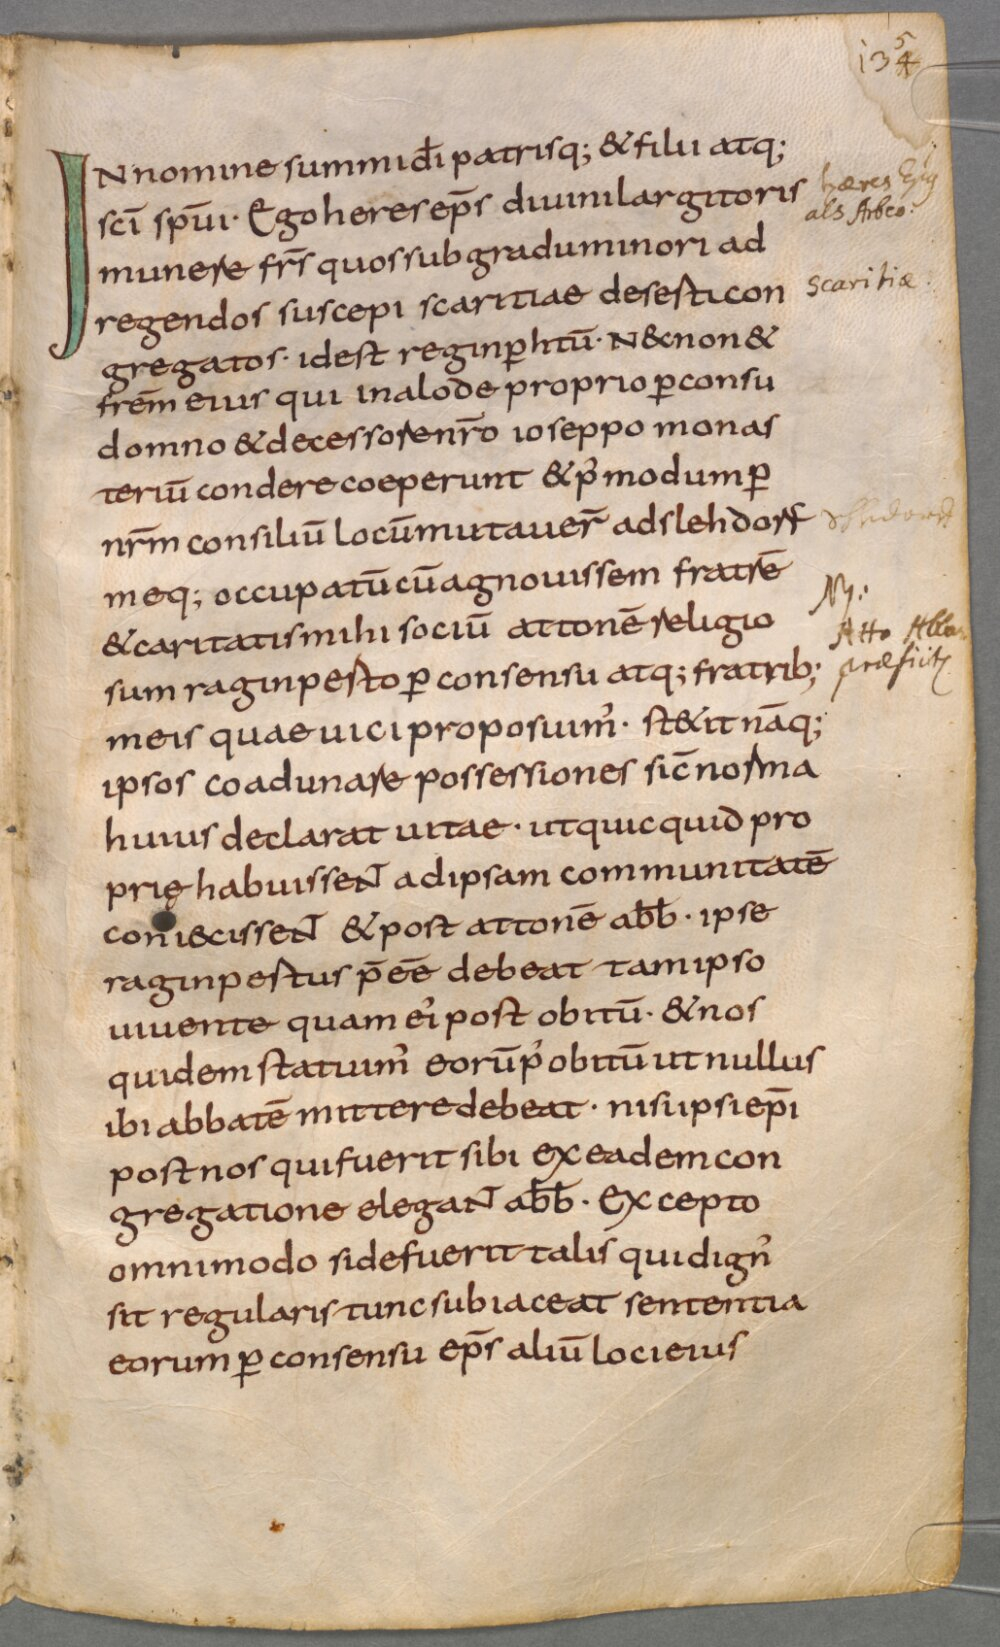 135
IN nomine summi dī patrisq; & filii atq;
sc̄i sp̄ui· Ego heres ep̄s diuini largitoris
hæres
als Arbeo:
munere fr̄s quos sub gradu minori ad
regendos suscepi scaritiae desesti con
scaritiæ
gregatos· id est reginꝑhtū· N& non &
fr̄em eius qui in alode proprio ꝑ consu
domno & decessore nr̄o ioseppo monas
teriū condere coeperunt & p᾽ modum ꝑ
nr̄m consiliū locū mutauer̄ ad slehdorf
meq; occupatū cū agnouissem fratrē
& caritatis mihi sociū attonē religio
Atto Abbas
sum raginpesto ꝑ consensu atq; fratrib;
præficit
meis quae uici proposuim᾽· st&it nāq;
ipsos coadunare possessiones sic̄ norma
huius declarat uitae· ut quicquid pro
prię habuissent ad ipsam communitatē
coni&cissent & post attonē abb̄· ipse
raginpestus p̄eē debeat tam ipso
uiuente quam ei᾽ post obitū· & nos
quidem statuim᾽ eorū p᾽ obitū ut nullus
ibi abbatē mittere debeat· nisi ipsi ep̄i
post nos qui fuerit sibi ex eadem con
gregatione elegant abb̄· Excepto
omnimodo si defuerit talis qui dign᾽
sit regularis tunc subiaceat sententia
eorum ꝑ consensu ep̄s aliū loci eius